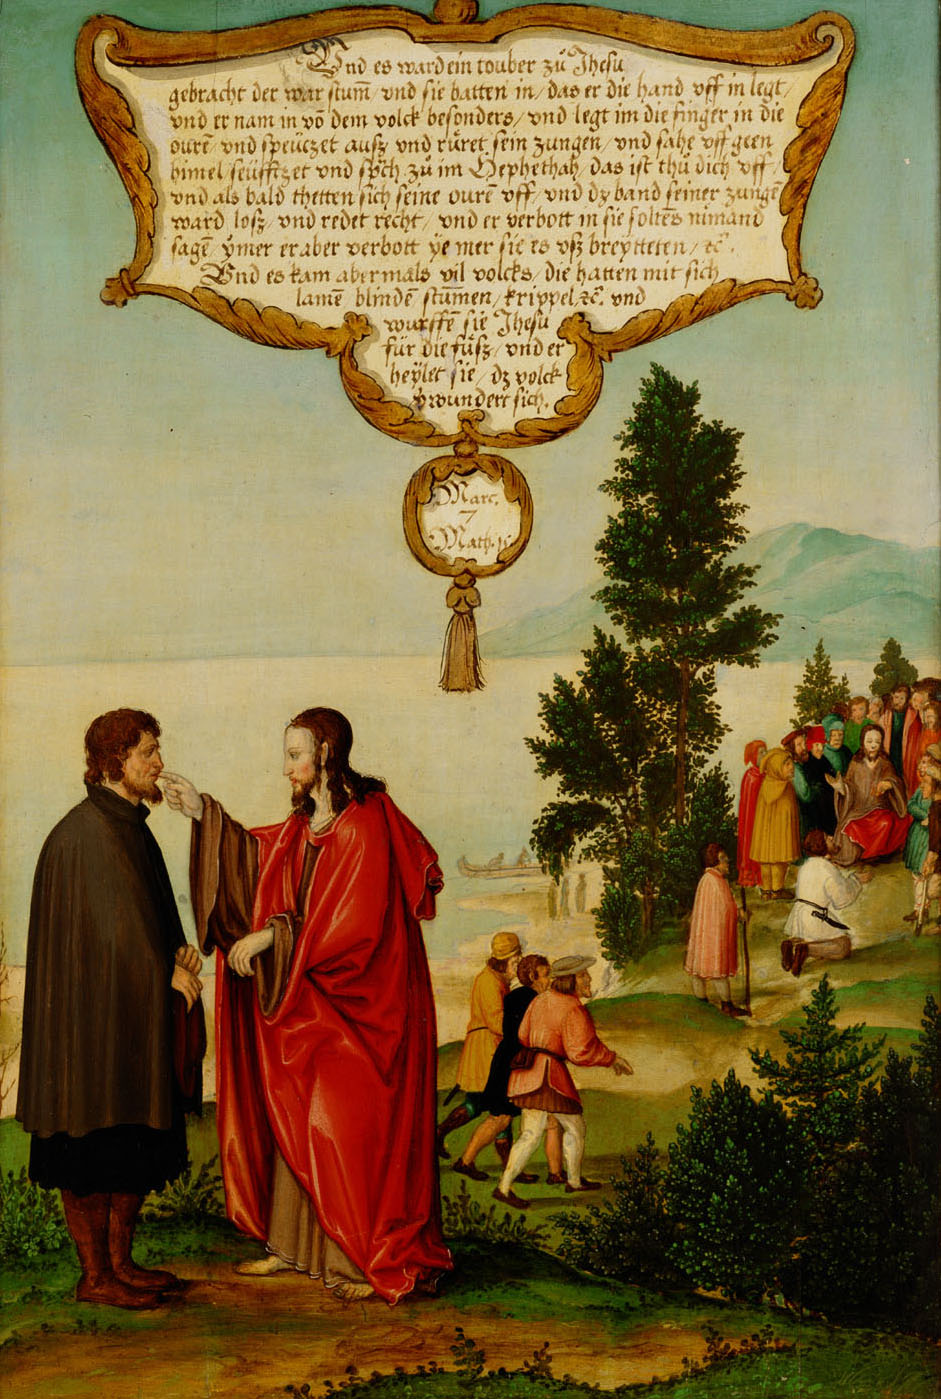 Vnd es ward ein touber zů Jhesu
gebracht der war stum̄/ vnd sie batten in/ das er die hand vff in legt/
vnd er nam in vō dem volck besonders/ vnd legt im die finger in die
ourē/ vnd speüczet ausz vnd rüret sein zungen/ vnd sahe vff geen
himel/ seüfftzet vnd sp̄ch zů im Hephethah/ das ist thů dich vff/
vnd als bald thetten sich seine ourē vff/ vnd dz band seiner zungē
ward losz/ vnd redet recht/ vnd er verbott in sie soltēs nimand
sagē ÿmer er aber verbott ÿe mer sie es vsz breÿtteten/ ⁊c̄.
Vnd es kam abermals vil volcks/ die hatten mit sich
lamē blindē stum̄en/ krippel/ ⁊c̄. vnd
wurffē sie Jhesu
für die füsz/ vnd er
heÿlet sie/ dz volck
v̄wundert sich.
Marc.
7
Math. 15